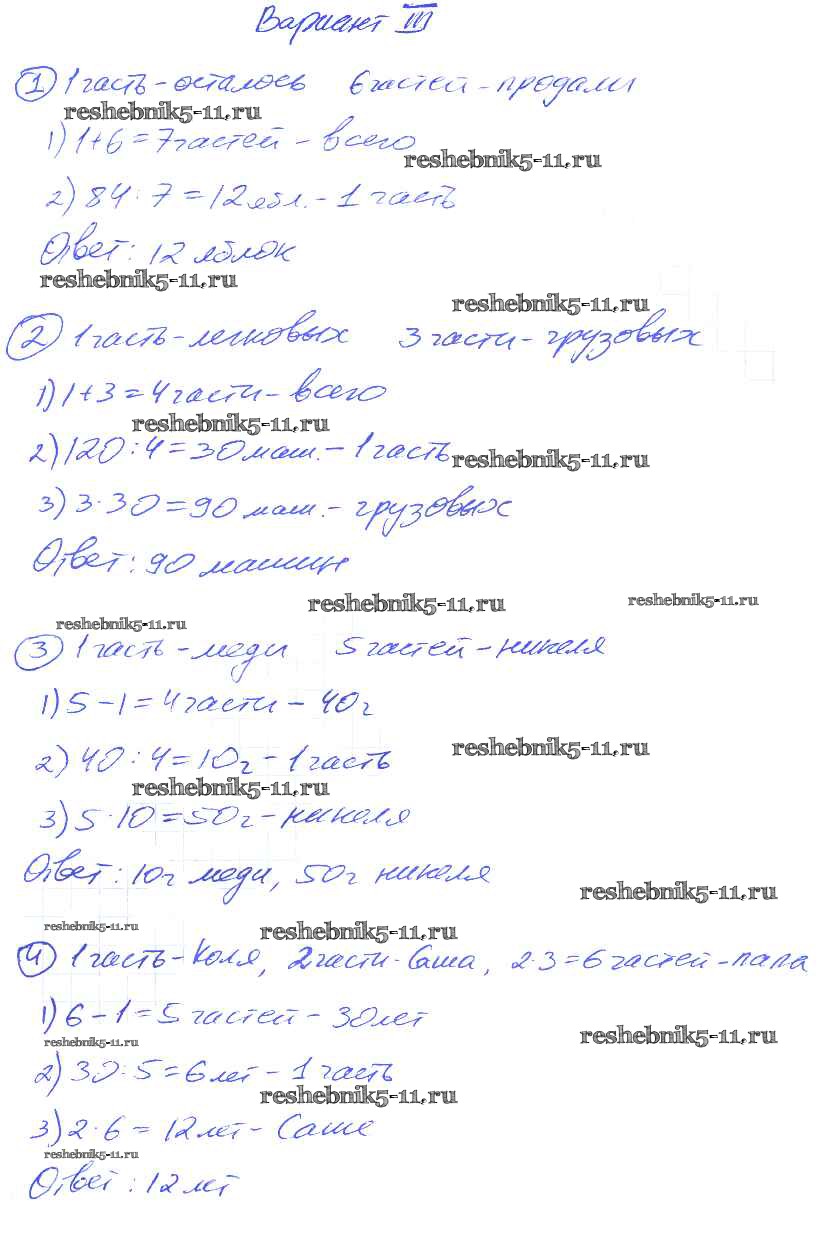 Вариант III
1 1 часть - осталось 6 частей - продали
reshebnik5-11.ru
1) 1+6=7 частей - всего
reshebnik5-11.ru
2) 84:7=12 ябл. - 1 часть
Ответ: 12 яблок
reshebnik5-11.ru
reshebnik5-11.ru
2 1 часть - легковых 3 части - грузовых
1) 1+3=4 части - всего
reshebnik5-11.ru
2) 120:4=30 маш. - 1 часть
reshebnik5-11.ru
3) 3·30=90 маш. - грузовых
Ответ: 90 машин
reshebnik5-11.ru reshebnik5-11.ru
reshebnik5-11.ru
3 1 часть - меди 5 частей - никеля
1) 5-1=4 части - 40г
reshebnik5-11.ru
2) 40:4=10г - 1 часть
reshebnik5-11.ru
3) 5·10=50г - никеля
Ответ: 10г меди, 50г никеля
reshebnik5-11.ru
reshebnik5-11.ru reshebnik5-11.ru
4 1 часть - Коля, 2 части - Саша, 2·3=6 частей - папа
1) 6-1=5 частей - 30 лет
reshebnik5-11.ru reshebnik5-11.ru
2) 30:5=6 лет - 1 часть
reshebnik5-11.ru
3) 2·6=12 лет - Саше
reshebnik5-11.ru
Ответ: 12 лет